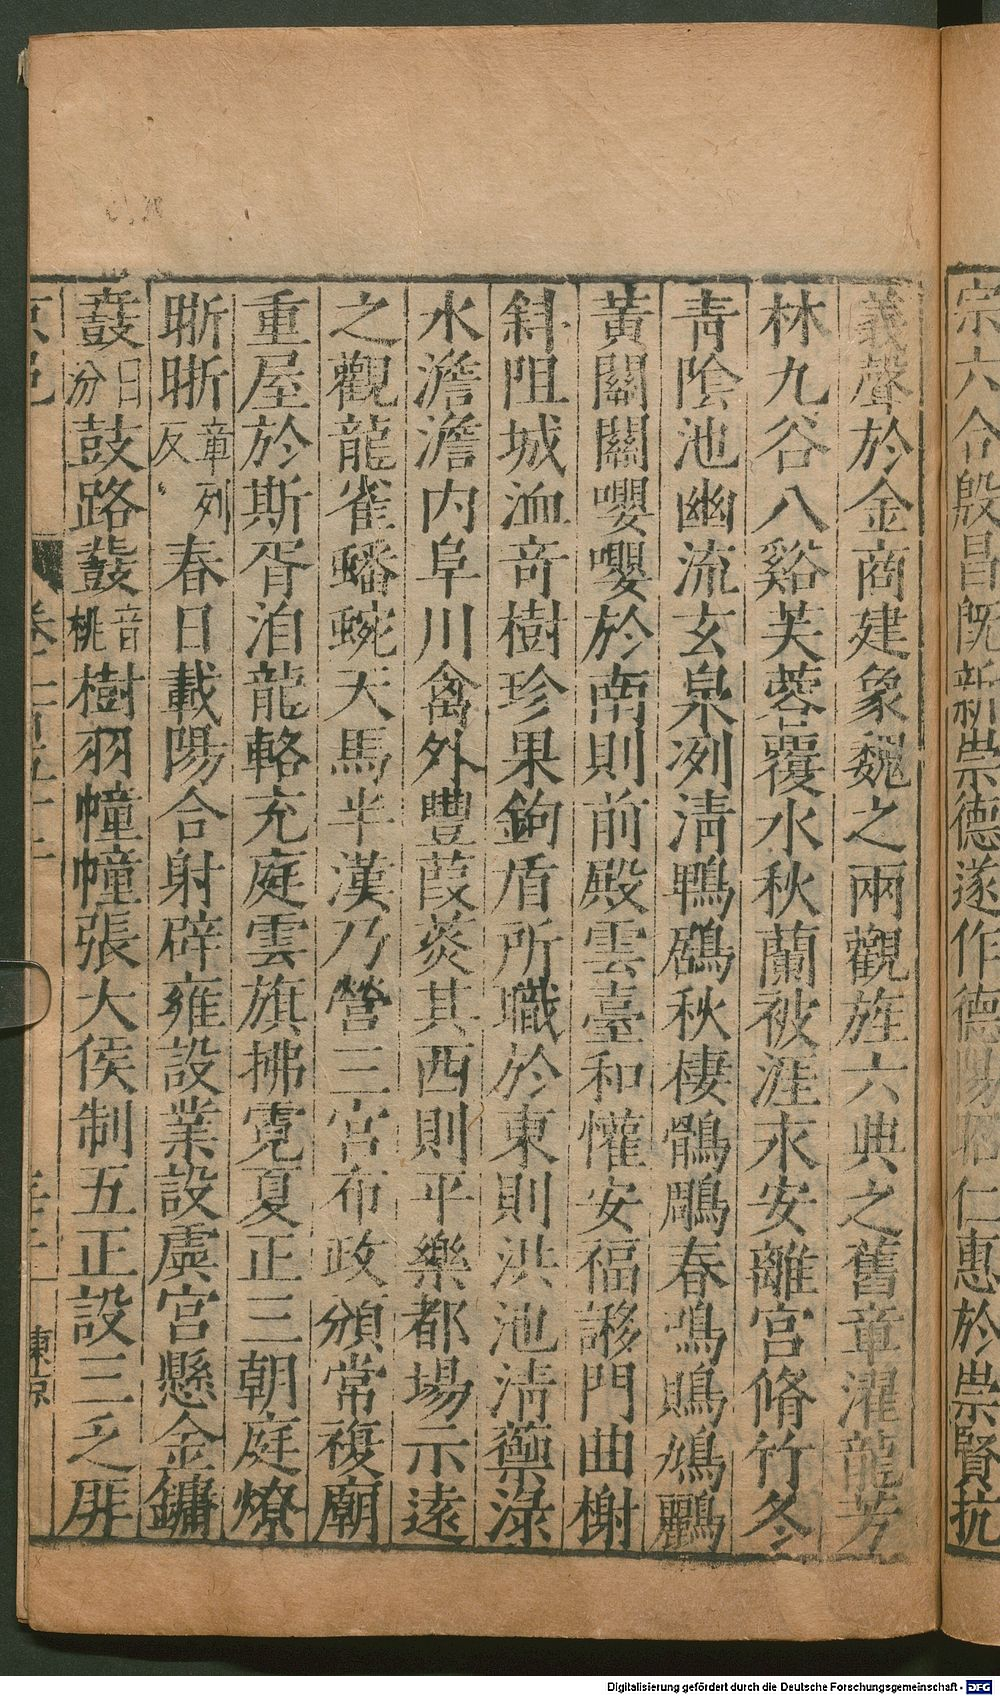 宗六合殷昌旣新崇德遂作德陽昭仁惠於崇賢抗
義聲於金商建象魏之兩觀旌六典之舊章濯龍芳
林九谷八谿芙蓉覆水秋蘭被涯永安離宮脩竹冬
靑陰池幽流玄泉冽淸鵯鶋秋棲鶻鵰春鳴鴡鳩鸝
黃關關嚶嚶於南則前殿雲臺和懽安福謻門曲榭
斜阻城洫奇樹珍果鉤盾所職於東則洪池淸蘌淥
水澹澹內阜川禽外豐葭菼其西則平樂都場示遠
之觀龍雀蟠蜿天馬半漢乃營三宮布政頒常複廟
重屋於斯胥洎龍輅充庭雲旗拂霓夏正三朝庭燎
晣晣章列反春日載陽合射辟雍設業設虡宮懸金鏞
鼖日分鼓路鼗音桃樹羽幢幢張大侯制五正設三乏厞
東京
Digitalisierung gefördert durch die Deutsche Forschungsgemeinschaft - DFG